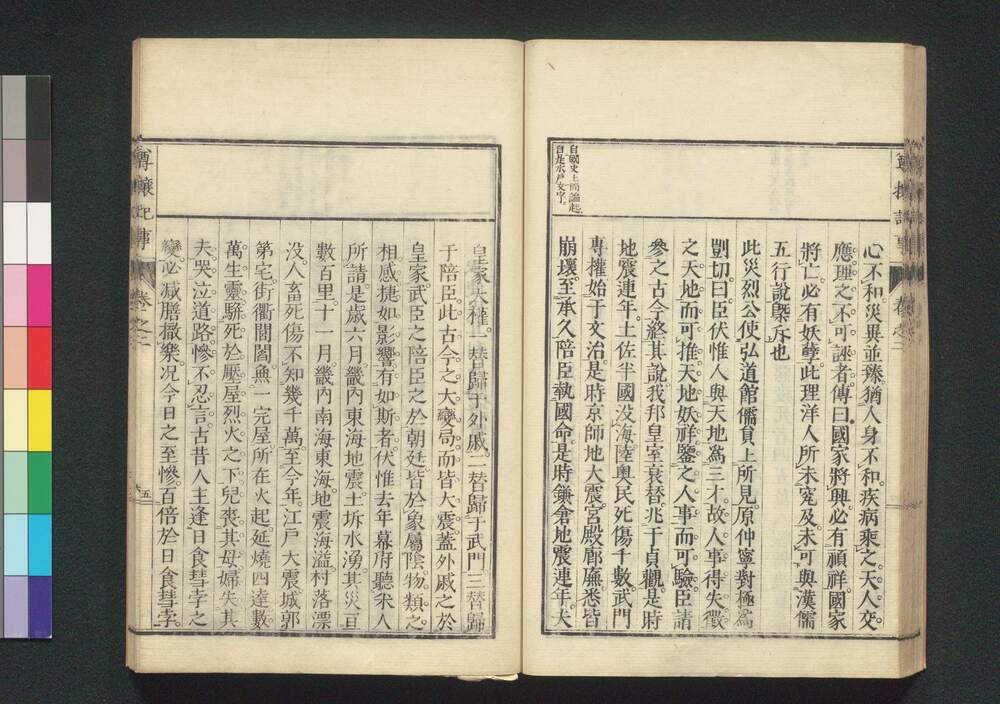 自國史上而論起
自是水戶文字
心不和災異並臻猶人身不和疾病乘之天人交
應理之不可誣者傳曰國家將興必有禎祥國家
將亡必有妖孽此理洋人所未究及未可與漢儒
五行說槩斥也
此災烈公使弘道館儒員上所見原仲寧對極爲
剴切曰臣伏惟人與天地爲三才故人事得失徵
之天地而可推天地妖祥鑒之人事而可驗臣請
參之古今終其說我邦皇室衰替兆于貞觀是時
地震連年土佐半國沒海陸奧民死傷千數武門
專權始于文治是時京師地大震宮殿廊廡悉皆
崩壞至承久陪臣執國命是時鎌倉地震連年大
皇家大權一替歸于外戚二替歸于武門三替歸
于陪臣此古今之大變局而皆大震蓋外戚之於
皇家武臣之陪臣之於朝廷皆於象屬陰物類之
相感捷如影響有如斯者伏惟去年幕府聽米人
所請是歲六月畿內東海地震土坼水湧其災亘
數百里十一月畿內南海東海地震海溢村落漂
沒人畜死傷不知幾千萬至今年江戶大震城郭
第宅街衢閭閻無一完屋所在火起延燒四達數
萬生靈騈死於壓屋烈火之下兒喪其母婦失其
夫哭泣道路慘不忍言古昔人主逢日食彗孛之
變必減膳撤樂況今日之至慘百倍於日食彗孛
卷之二
五